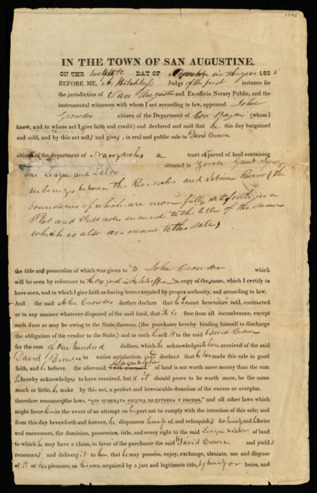 IN THE TOWN OF SAN AUGUSTINE.
ON THE twelfth DAY OF 183
BEFORE ME, A. Hotchkiss Judge of the first instance for
the jurisdiction of San Augustine and Ex-officio Notary Public, and the
instrumental witnesses with whom I act according to law, appeared John
Crowder citizen of the Department of (whom I
know, and to whose act I give faith and credit) and declared and said that he this day bargained
and sold, and by this act sell, and give, in real and perpetual sale to David Brown
citizen of the department of Nacogdoches a tract or parcel of land containing
One League and Labor situated in
between the and Sabine River (the
boundaries of which are more fully set forth in a
Plat and Field notes annexed to the title of the same
which is also annexed to this deed)
the title and possession of which was given to John Crowder which
will be seen by reference to the copy of the same, which I certify to
have seen, and to which I give faith as having been executed by proper authority, and according to law.
And the said John Crowder further declare that he has not heretofore sold, contracted
or in any manner whatever disposed of the said land, that it is free from all incumbrance, except
such dues as may be owing to the State, thereon, (the purchaser hereby binding himself to discharge
the obligation of the vendor to the State,) and as such I sell it to the said David Brown
for the sum of One hundred dollars, which he acknowledges to have received of the said
David Brown to entire satisfaction, and declare that he has made this sale in good
faith, and he believe the aforesaid League & Labor of land is not worth more money than the sum
hereby acknowledge to have received, but if it should prove to be worth more, be the same
much or little, he make by this act, a perfect and irrevocable donation of the excess or overplus,
therefore renounce the laws, and all other laws which
might favor him in the event of an attempt on his part not to comply with the intention of this sale; and
from this day henceforth and forever, he dispossess himself of, and relinquish, for himself and heirs
and successors, the dominion, possession, title, and every right to the said League & Labor of land
to which he may have a claim, in favor of the purchaser the said David Brown and yield,
renounce, and deliver, it to him that he may possess, enjoy, exchange, alienate, use and dispose
of it at his pleasure, as his own, acquired by a just and legitimate title, heirs, and